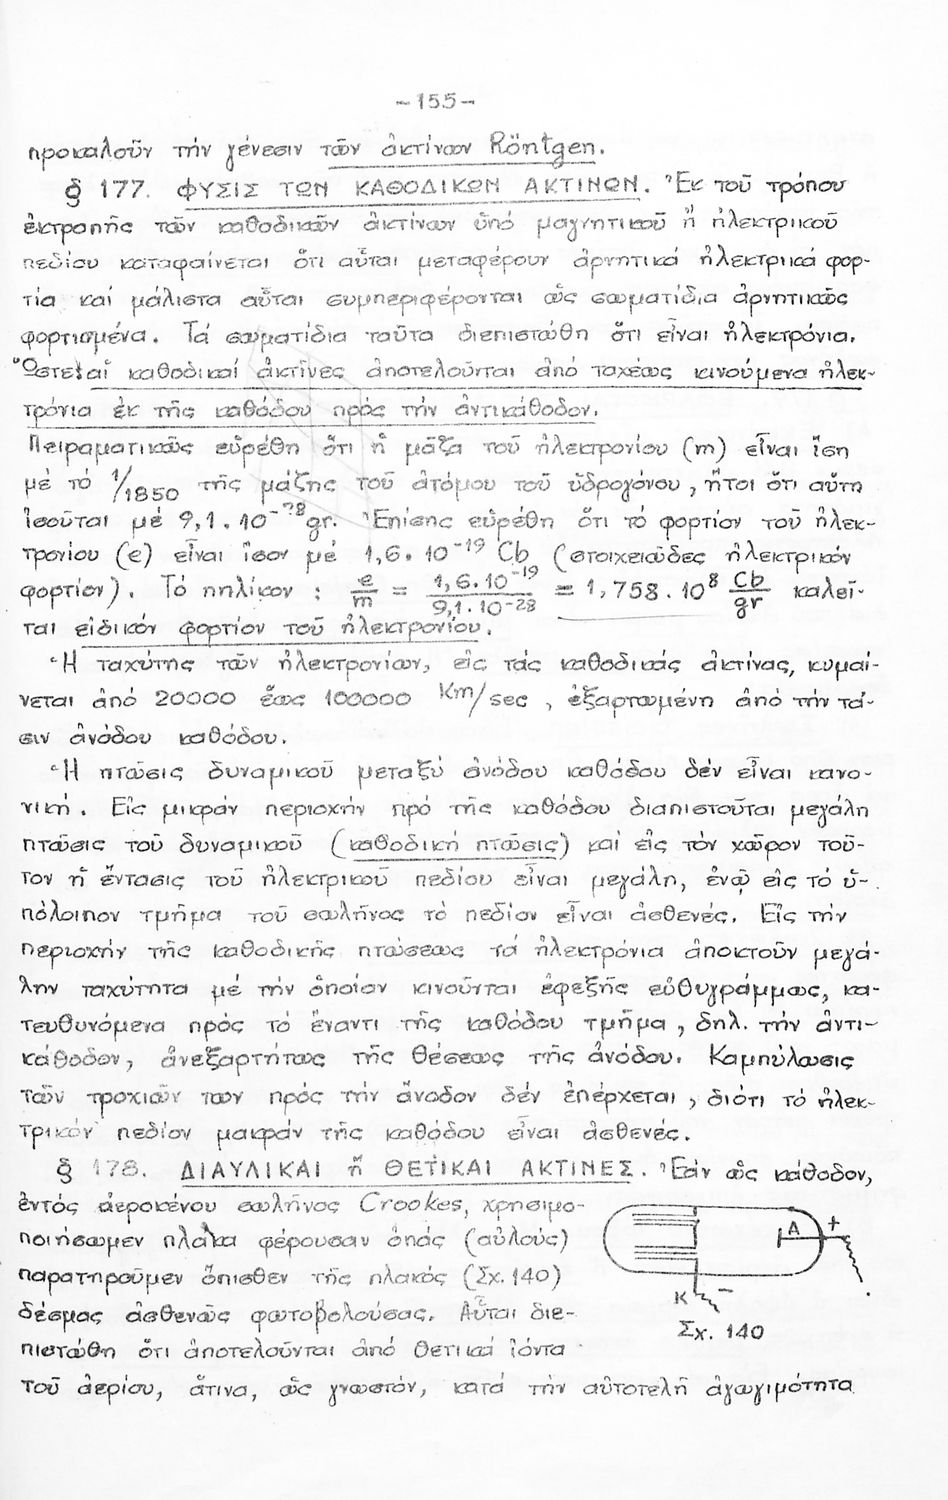 -155-
προκαλοῦν τήν γένεσιν τῶν ἀκτίνων Röntgen.
§ 177. ΦΥΣΙΣ ΤΩΝ ΚΑΘΟΔΙΚΩΝ ΑΚΤΙΝΩΝ. Ἐκ τοῦ τρόπου
ἐκτροπῆς τῶν καθοδικῶν ἀκτίνων ὑπό μαγνητικοῦ ἤ ἠλεκτρικοῦ
πεδίου καταφαίνεται ὅτι αὗται μεταφέρουν ἀρνητικά ἠλεκτρικά φορ-
τία καί μάλιστα αὗται συμπεριφέρονται ὡς σωματίδια ἀρνητικῶς
φορτισμένα. Τά σωματίδια ταῦτα διεπιστώθη ὅτι εἶναι ἠλεκτρόνια.
Ὥστε αἱ καθοδικαί ἀκτῖνες ἀποτελοῦνται ἀπό ταχέως κινούμενα ἠλεκ-
τρόνια ἐκ τῆς καθόδου πρός τήν ἀντικάθοδον.
Πειραματικῶς εὑρέθη ὅτι ἡ μᾶζα τοῦ ἠλεκτρονίου (m) εἶναι ἴση
μέ τό 1/1850 τῆς μάζης τοῦ ἀτόμου τοῦ ὑδρογόνου, ἤτοι ὅτι αὕτη
ἰσοῦται μέ 9,1.10⁻²⁸ gr. Ἐπίσης εὑρέθη ὅτι τό φορτίον τοῦ ἠλεκ-
τρονίου (e) εἶναι ἴσον μέ 1,6.10⁻¹⁹ Cb (στοιχειῶδες ἠλεκτρικόν
φορτίον). Τό πηλίκον : e/m = 1,6.10⁻¹⁹/9,1.10⁻²⁸ = 1,758.10⁸ Cb/gr καλεῖ-
ται εἰδικόν φορτίον τοῦ ἠλεκτρονίου.
Ἡ ταχύτης τῶν ἠλεκτρονίων, εἰς τάς καθοδικάς ἀκτίνας, κυμαί-
νεται ἀπό 20000 ἕως 100000 Km/sec, ἐξαρτωμένη ἀπό τήν τά-
σιν ἀνόδου καθόδου.
Ἡ πτῶσις δυναμικοῦ μεταξύ ἀνόδου καθόδου δέν εἶναι κανο-
νική. Εἰς μικράν περιοχήν πρό τῆς καθόδου διαπιστοῦται μεγάλη
πτῶσις τοῦ δυναμικοῦ (καθοδική πτῶσις) καί εἰς τόν χῶρον τοῦ-
τον ἡ ἔντασις τοῦ ἠλεκτρικοῦ πεδίου εἶναι μεγάλη, ἐνῷ εἰς τό ὑ-
πόλοιπον τμῆμα τοῦ σωλῆνος τό πεδίον εἶναι ἀσθενές. Εἰς τήν
περιοχήν τῆς καθοδικῆς πτώσεως τά ἠλεκτρόνια ἀποκτοῦν μεγά-
λην ταχύτητα μέ τήν ὁποίαν κινοῦνται ἐφεξῆς εὐθυγράμμως, κα-
τευθυνόμενα πρός τό ἔναντι τῆς καθόδου τμῆμα, δηλ. τήν ἀντι-
κάθοδον, ἀνεξαρτήτως τῆς θέσεως τῆς ἀνόδου. Καμπύλωσις
τῶν τροχιῶν των πρός τήν ἄνοδον δέν ἐπέρχεται, διότι τό ἠλεκ-
τρικόν πεδίον μακράν τῆς καθόδου εἶναι ἀσθενές.
§ 178. ΔΙΑΥΛΙΚΑΙ ἤ ΘΕΤΙΚΑΙ ΑΚΤΙΝΕΣ. Ἐάν ὡς κάθοδον,
ἐντός ἀεροκένου σωλῆνος Crookes, χρησιμο-
ποιήσωμεν πλάκα φέρουσαν ὀπάς (αὐλούς)
παρατηροῦμεν ὄπισθεν τῆς πλακός (Σχ. 140)
δέσμας ἀσθενῶς φωτοβολούσας. Αὗται διε-
πιστώθη ὅτι ἀποτελοῦνται ἀπό θετικά ἰόντα
τοῦ ἀερίου, ἅτινα, ὡς γνωστόν, κατά τήν αὐτοτελῆ ἀγωγιμότητα
Α +
Κ -
Σχ. 140